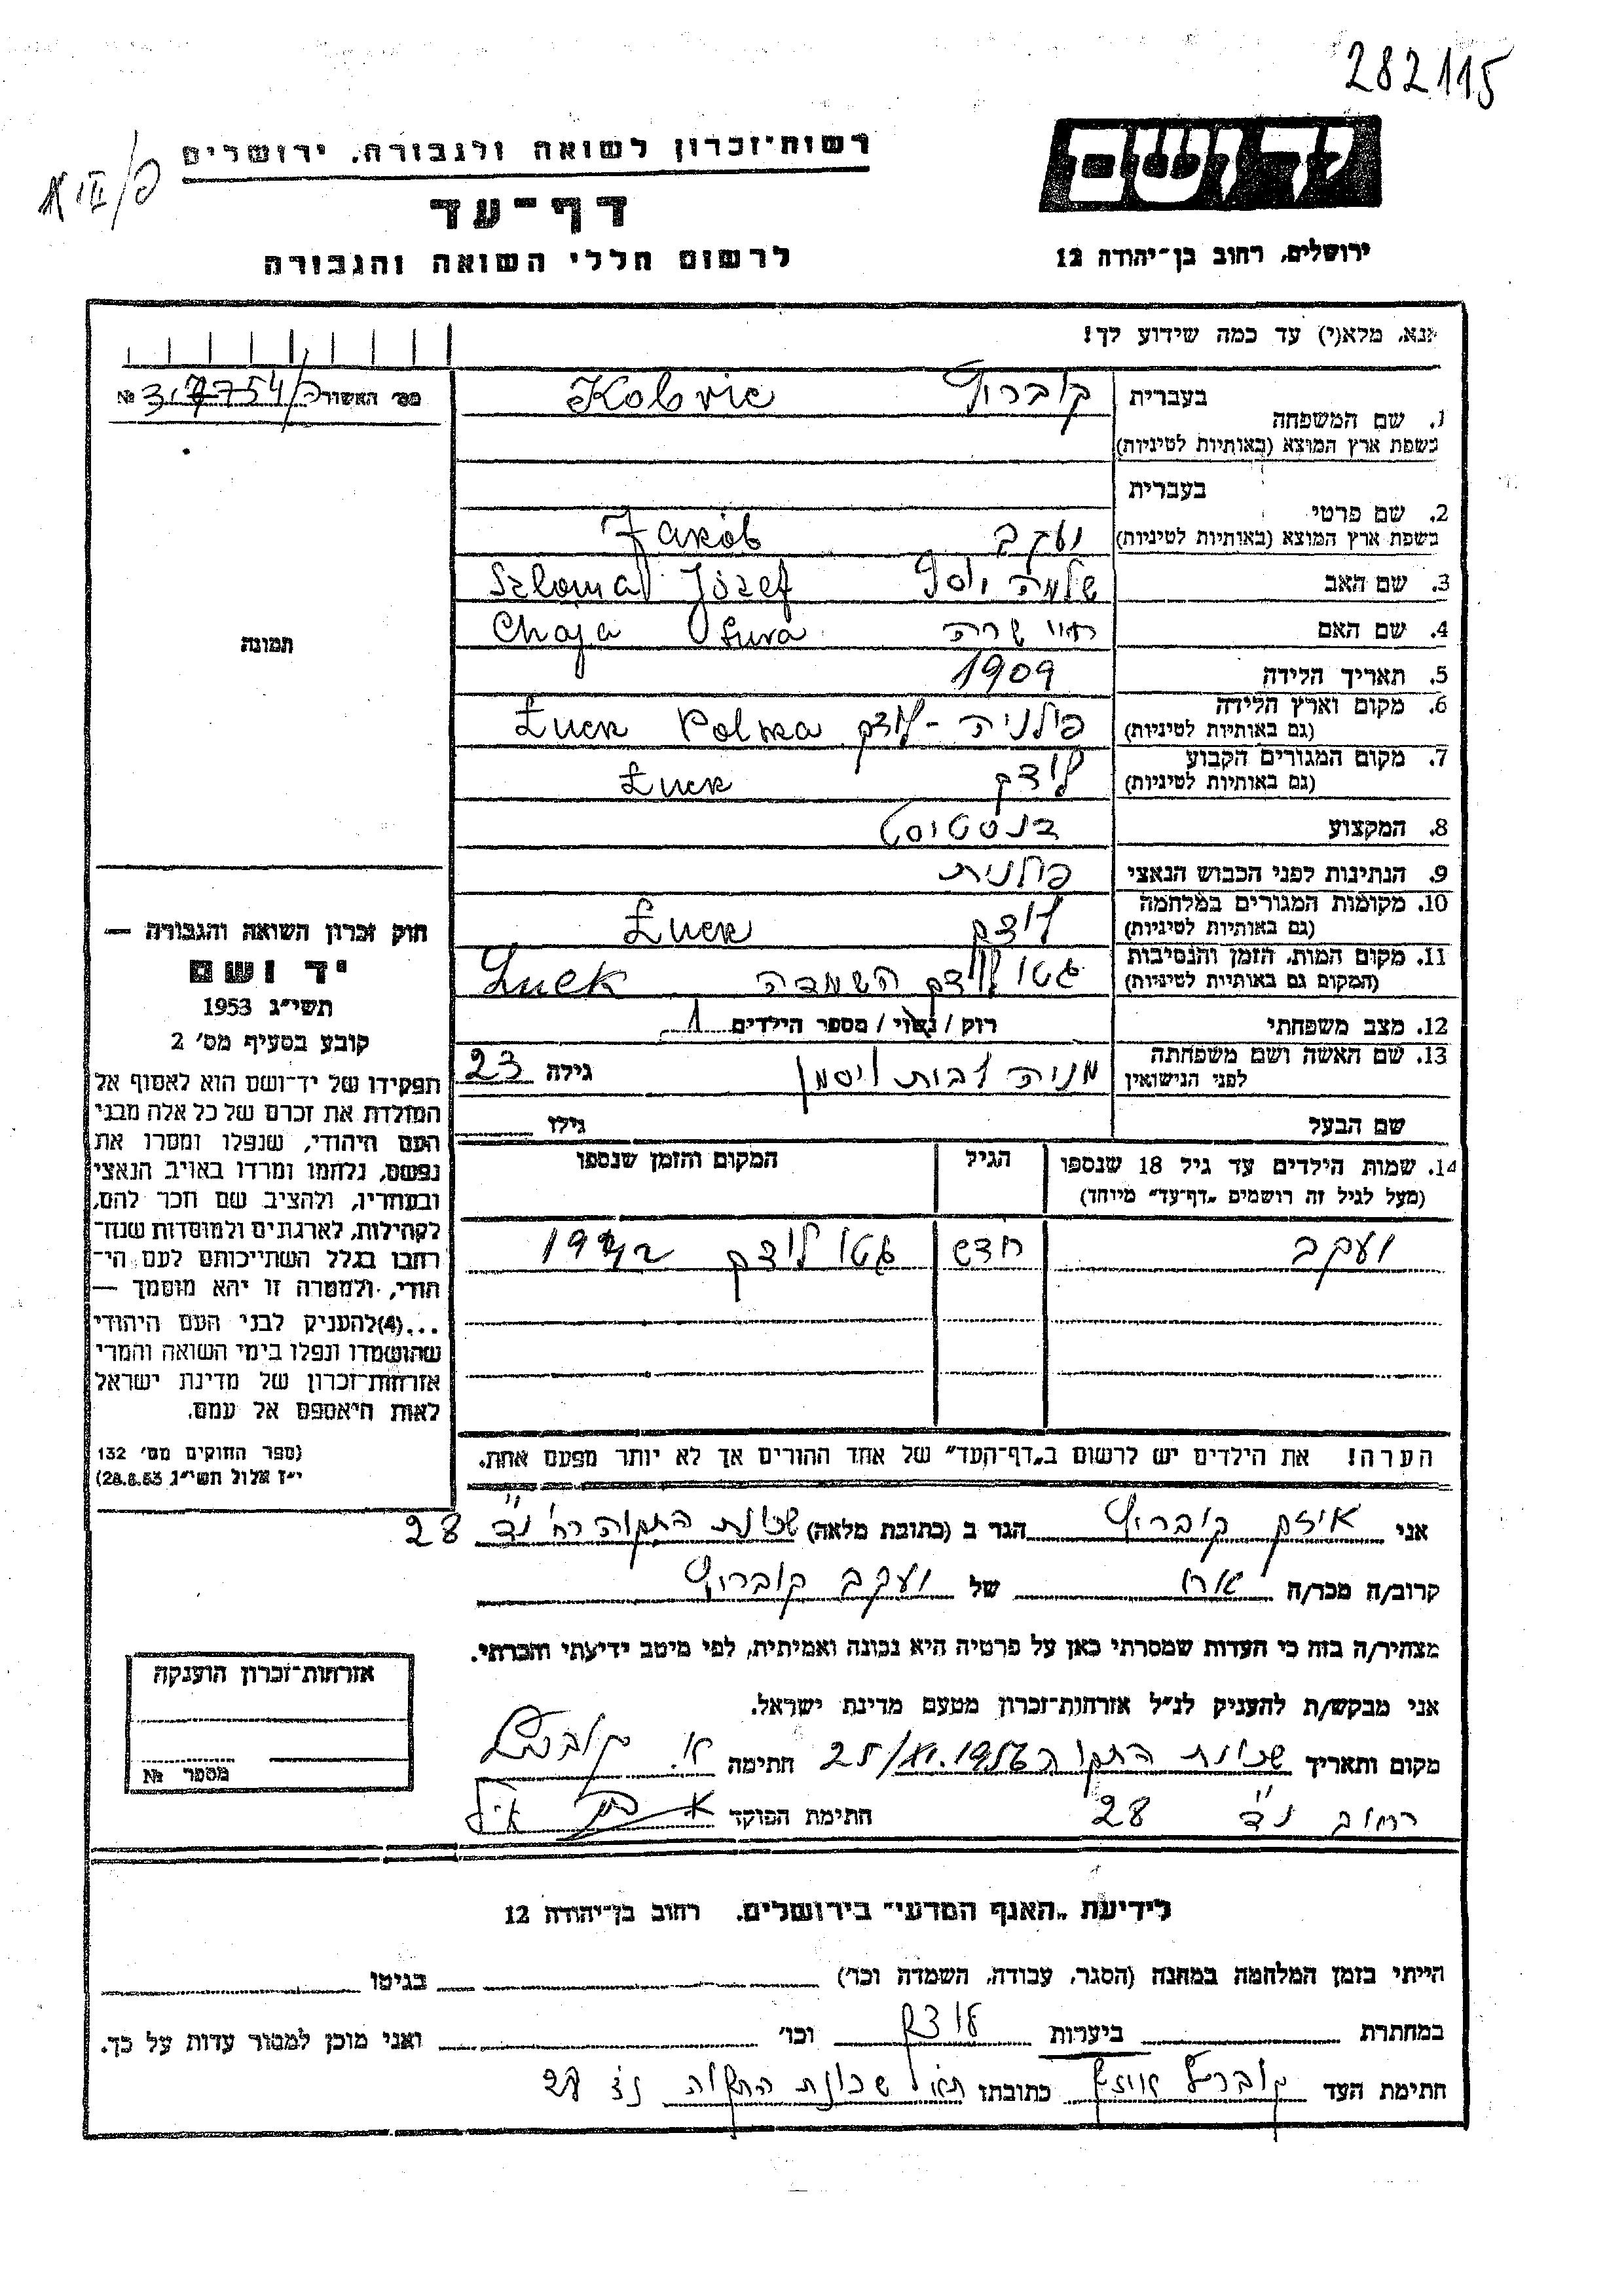 282115
רשות־זכרון לשואה ולגבורה, ירושלים
יד ושם
דף־עד
לרשום חללי השואה והגבורה
ירושלים, רחוב בן־יהודה 12
אנא, מלא(י) עד כמה שידוע לך!
מס' האשור № 
1. שם המשפחה בעברית קוברוק Kobric
בשפת ארץ המוצא (באותיות לטיניות)
2. שם פרטי בעברית
בשפת ארץ המוצא (באותיות לטיניות) יעקב Jakób
3. שם האב שלמה יוסף Szloma Józef
4. שם האם חיי שרה Chaja Sura
5. תאריך הלידה 1909
6. מקום וארץ הלידה (גם באותיות לטיניות) פולניה - לוצק Łuck Polska
7. מקום המגורים הקבוע (גם באותיות לטיניות) לוצק Łuck
8. המקצוע
9. הנתינות לפני הכבוש הנאצי פולנית
10. מקומות המגורים במלחמה (גם באותיות לטיניות) לוצק Łuck
11. מקום המות, הזמן והנסיבות (המקום גם באותיות לטיניות) גטו לוצק השמדה Łuck
12. מצב משפחתי רוק / נשוי / מספר הילדים 1
13. שם האשה ושם משפחתה לפני הנישואין מניה לבית ויסמן גילה 23
שם הבעל גילו
14. שמות הילדים עד גיל 18 שנספו (מעל לגיל זה רושמים „דף־עד" מיוחד) הגיל המקום והזמן שנספו
יעקב חדש גטו לוצק 1942
הערה! את הילדים יש לרשום ב„דף־העד" של אחד ההורים אך לא יותר מפעם אחת.
תמונה
חוק זכרון השואה והגבורה —
יד ושם
תשי״ג 1953
קובע בסעיף מס' 2
תפקידו של יד־ושם הוא לאסוף אל
המולדת את זכרם של כל אלה מבני
העם היהודי, שנפלו ומסרו את
נפשם, נלחמו ומרדו באויב הנאצי
ובעוזריו, ולהציב שם וזכר להם,
לקהילות, לארגונים ולמוסדות שנח־
רבו בגלל השתייכותם לעם הי־
הודי, ולמטרה זו יהא מוסמך —
...(4)להעניק לבני העם היהודי
שהושמדו ונפלו בימי השואה והמרי
אזרחות־זכרון של מדינת ישראל
לאות היאספם אל עמם.
(ספר החוקים מס' 132
י״ז אלול תשי״ג 28.8.53)
אני איזק קוברוק הגר ב (כתובת מלאה) שכונת התקוה רח' נ״ד 28
קרוב/ה מכר/ה אח של יעקב קוברוק
מצהיר/ה בזה כי העדות שמסרתי כאן על פרטיה היא נכונה ואמיתית, לפי מיטב ידיעתי והכרתי.
אני מבקש/ת להעניק לנ״ל אזרחות־זכרון מטעם מדינת ישראל.
מקום ותאריך שכונת התקוה 25/XI.1956 חתימה
רחוב נ״ד 28 חתימת הפוקד
אזרחות־זכרון הוענקה
מספר №
לידיעת „האגף המדעי" בירושלים, רחוב בן־יהודה 12
הייתי בזמן המלחמה במחנה (הסגר, עבודה, השמדה וכו') בגיטו
במחתרת ביערות לוצק וכו' ואני מוכן למסור עדות על כך.
חתימת העד קוברוק איזק כתובתו ת״א שכונת התקוה נ״ד 28